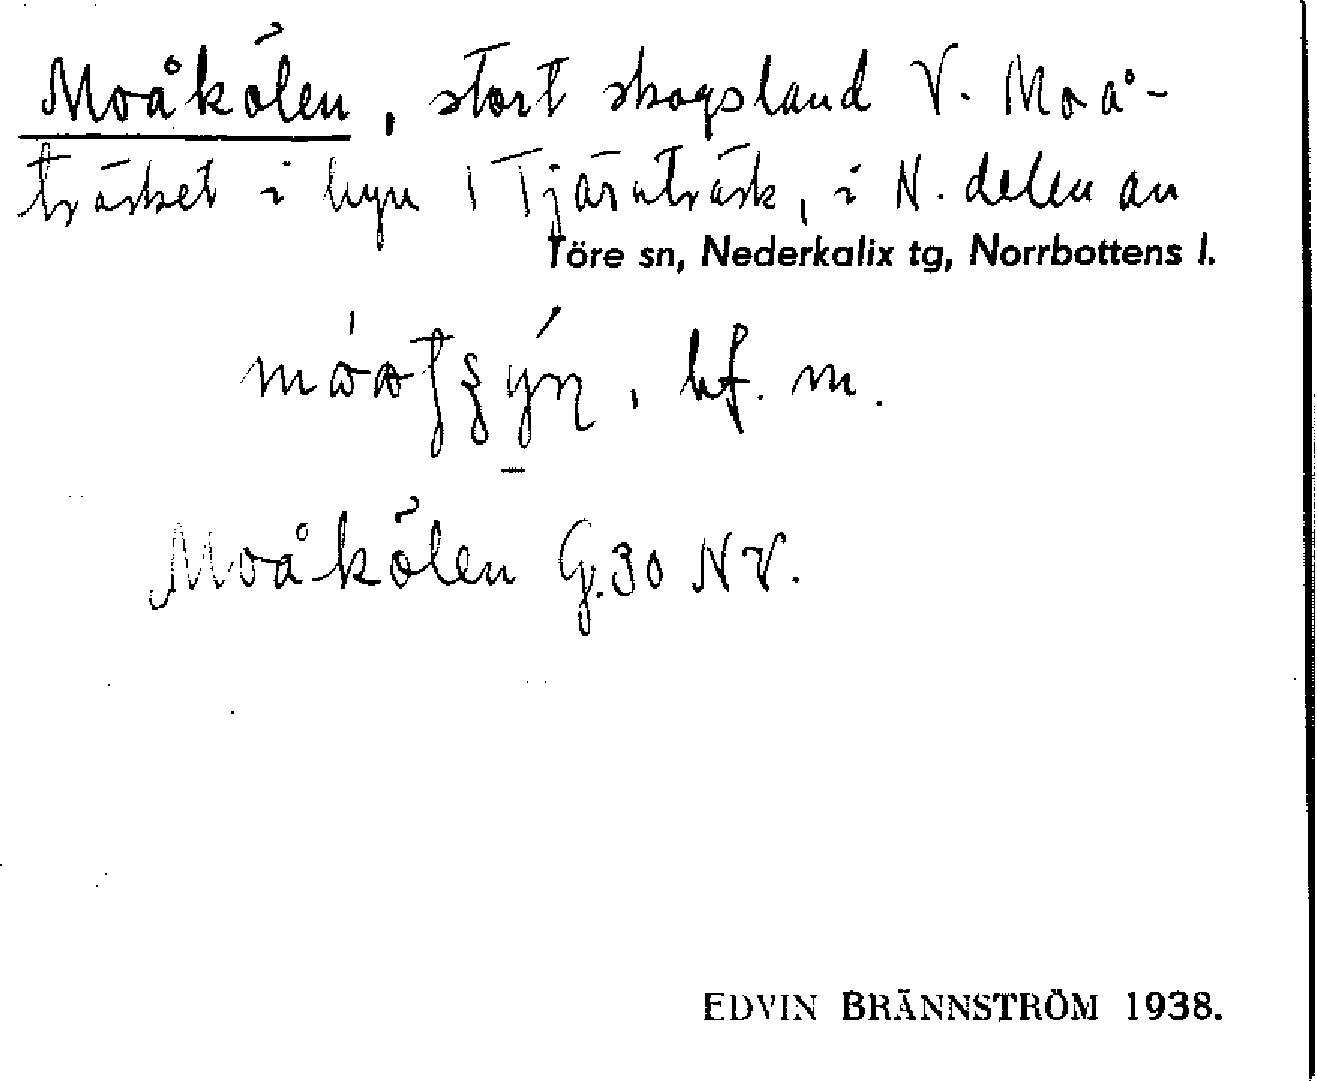 Moåkölen, stort skogsland V. Moå-
träsket i byn 1 Tjärnträsk, i N. delen av
Töre sn, Nederkalix tg, Norrbottens l.
bf. m.
Moåkölen G.30 NV.
EDVIN BRÄNNSTRÖM 1938.